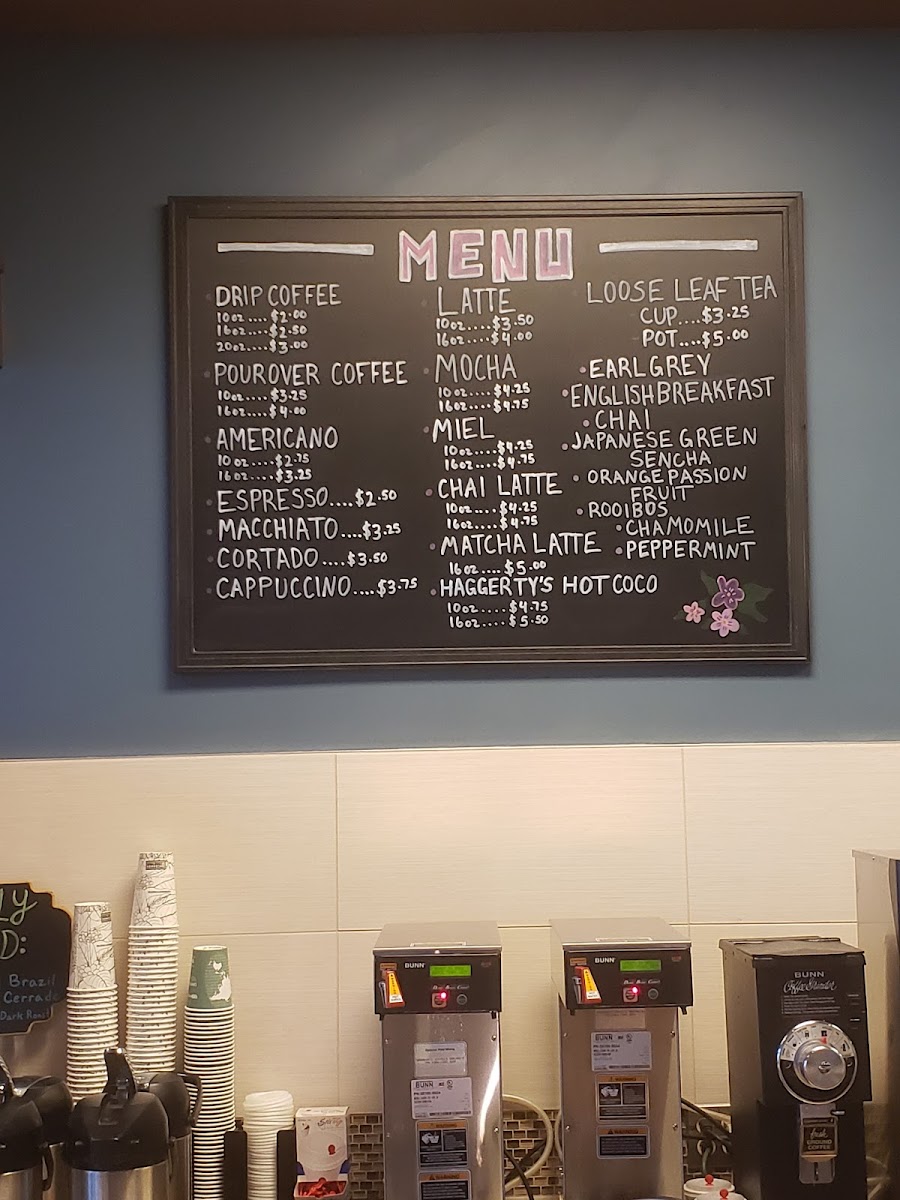 MENU
DRIP COFFEE
10oz....$2.00
16oz....$2.50
20oz....$3.00
POUROVER COFFEE
10oz....$3.25
16oz....$4.00
AMERICANO
10oz....$2.75
16oz....$3.25
ESPRESSO....$2.50
MACCHIATO....$3.25
CORTADO....$3.50
CAPPUCCINO....$3.75
LATTE
10oz....$3.50
16oz....$4.00
MOCHA
10oz....$4.25
16oz....$4.75
MIEL
10oz....$4.25
16oz....$4.75
CHAI LATTE
10oz....$4.25
16oz....$4.75
MATCHA LATTE
16oz....$5.00
HAGGERTY'S HOT COCO
10oz....$4.75
16oz....$5.50
LOOSE LEAF TEA
CUP....$3.25
POT....$5.00
EARL GREY
ENGLISH BREAKFAST
CHAI
JAPANESE GREEN
SENCHA
ORANGE PASSION
FRUIT
ROOIBOS
CHAMOMILE
PEPPERMINT
LY
D:
Brazil
Cerrado
Dark Roast
BUNN
BUNN
BUNN
BUNN
BUNN
Coffee Grinder
fresh
GROUND
COFFEE